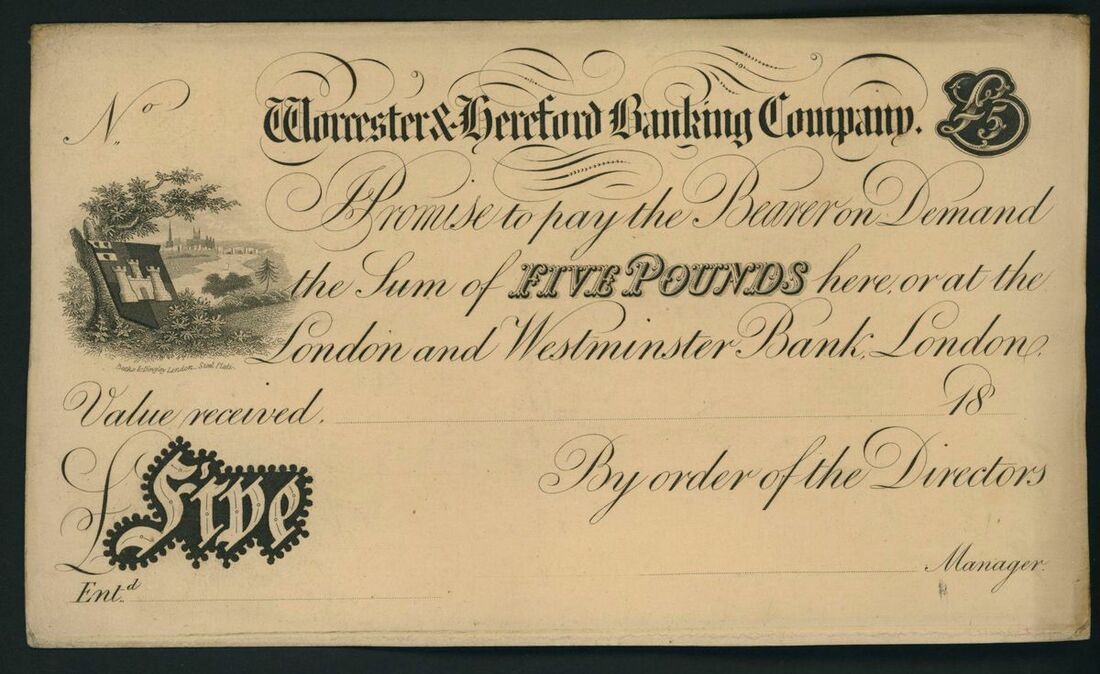 No.
Worcester & Hereford Banking Company. £5
I Promise to pay the Bearer on Demand
the Sum of FIVE POUNDS here, or at the
London and Westminster Bank, London.
Steel Plate.
Value received. 18
£ Five
By order of the Directors
Manager.
Ent.d